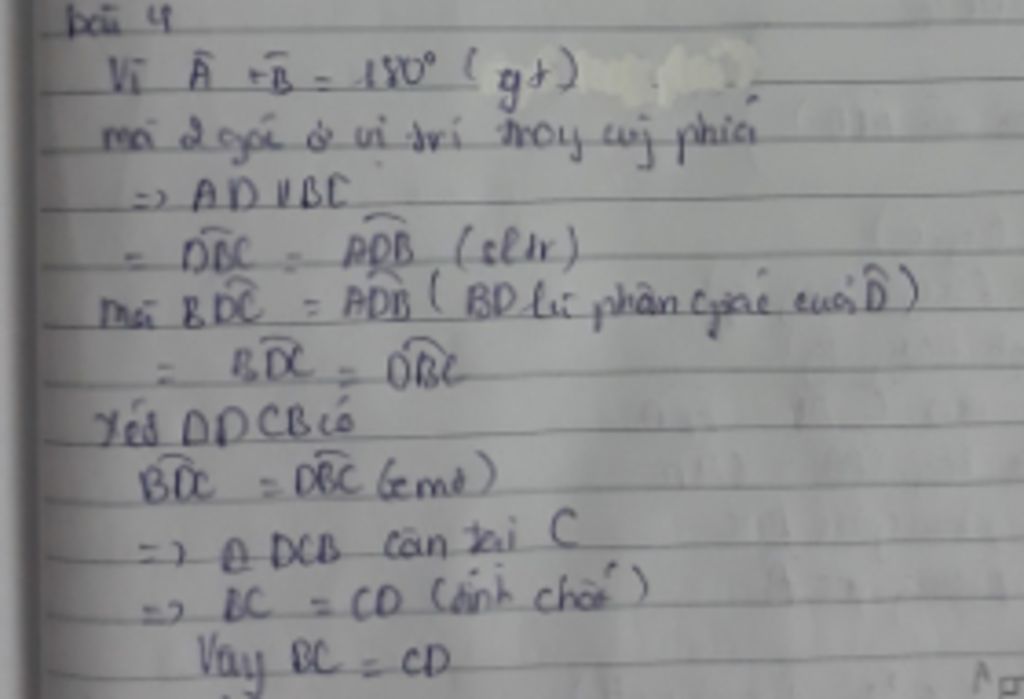 bài 4
Vì Â + B̂ = 180° (gt)
mà 2 góc ở vị trí trong cùng phía
=> AD // BC
= DB̂C = AD̂B (sltr)
mà BD̂C = AD̂B ( BD là phân giác của D̂ )
= BD̂C = DB̂C
Xét ΔDCB có
BD̂C = DB̂C (cmt)
=> Δ DCB cân tại C
=> BC = CD (tính chất)
Vậy BC = CD